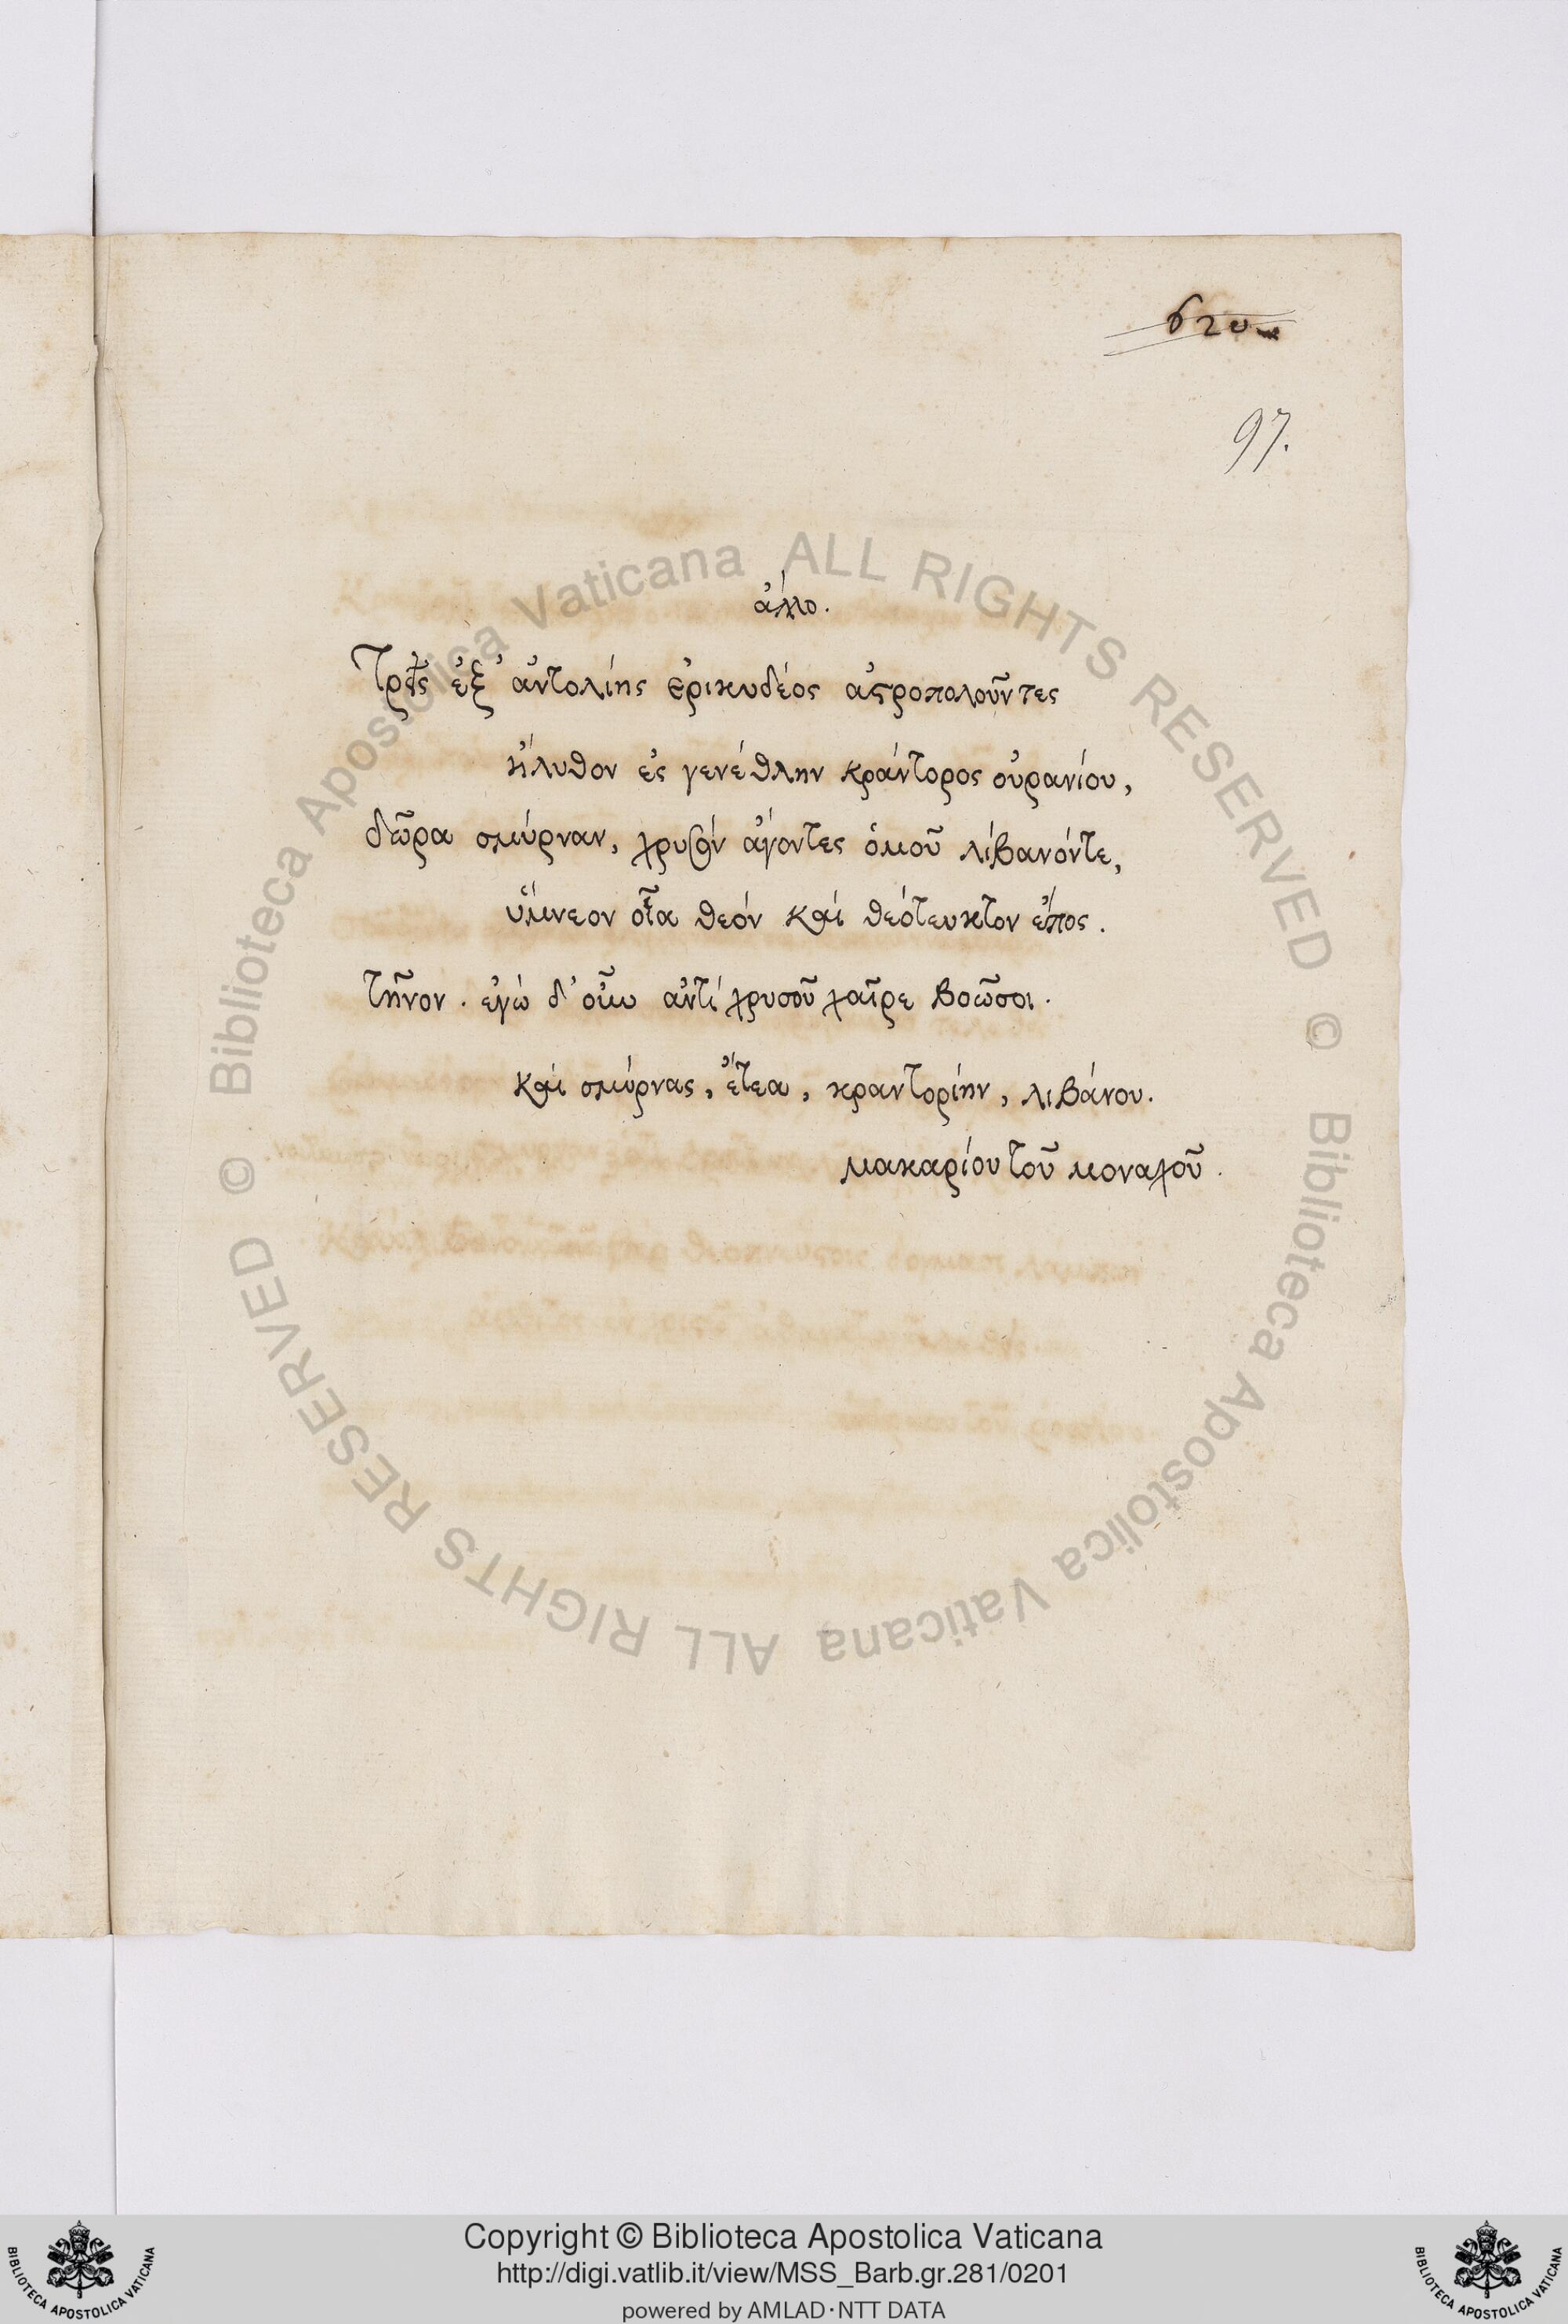 620
97.
ἄλλο.
Τρεῖς ἐξ ἀντολίης ἐρικυδέος ἀστροπολοῦντες
ἤλυθον ἐς γενέθλην κράντορος οὐρανίου,
δῶρα σμύρναν, χρυσόν ἄγοντες ὁμοῦ λίβανόντε,
ὕμνεον οἷα θεόν καί θεότευκτον ἔπος.
τῆνον. ἐγώ δ' οἴω ἀντί χρυσοῦ χαῖρε βοῶσοι.
καί σμύρνας, ἔτεα, κραντορίην, λιβάνου.
μακαρίου τοῦ μοναχοῦ.
© Biblioteca Apostolica Vaticana ALL RIGHTS RESERVED
© Biblioteca Apostolica Vaticana ALL RIGHTS RESERVED
Copyright © Biblioteca Apostolica Vaticana
http://digi.vatlib.it/view/MSS_Barb.gr.281/0201
powered by AMLAD·NTT DATA
BIBLIOTECA APOSTOLICA VATICANA
BIBLIOTECA APOSTOLICA VATICANA